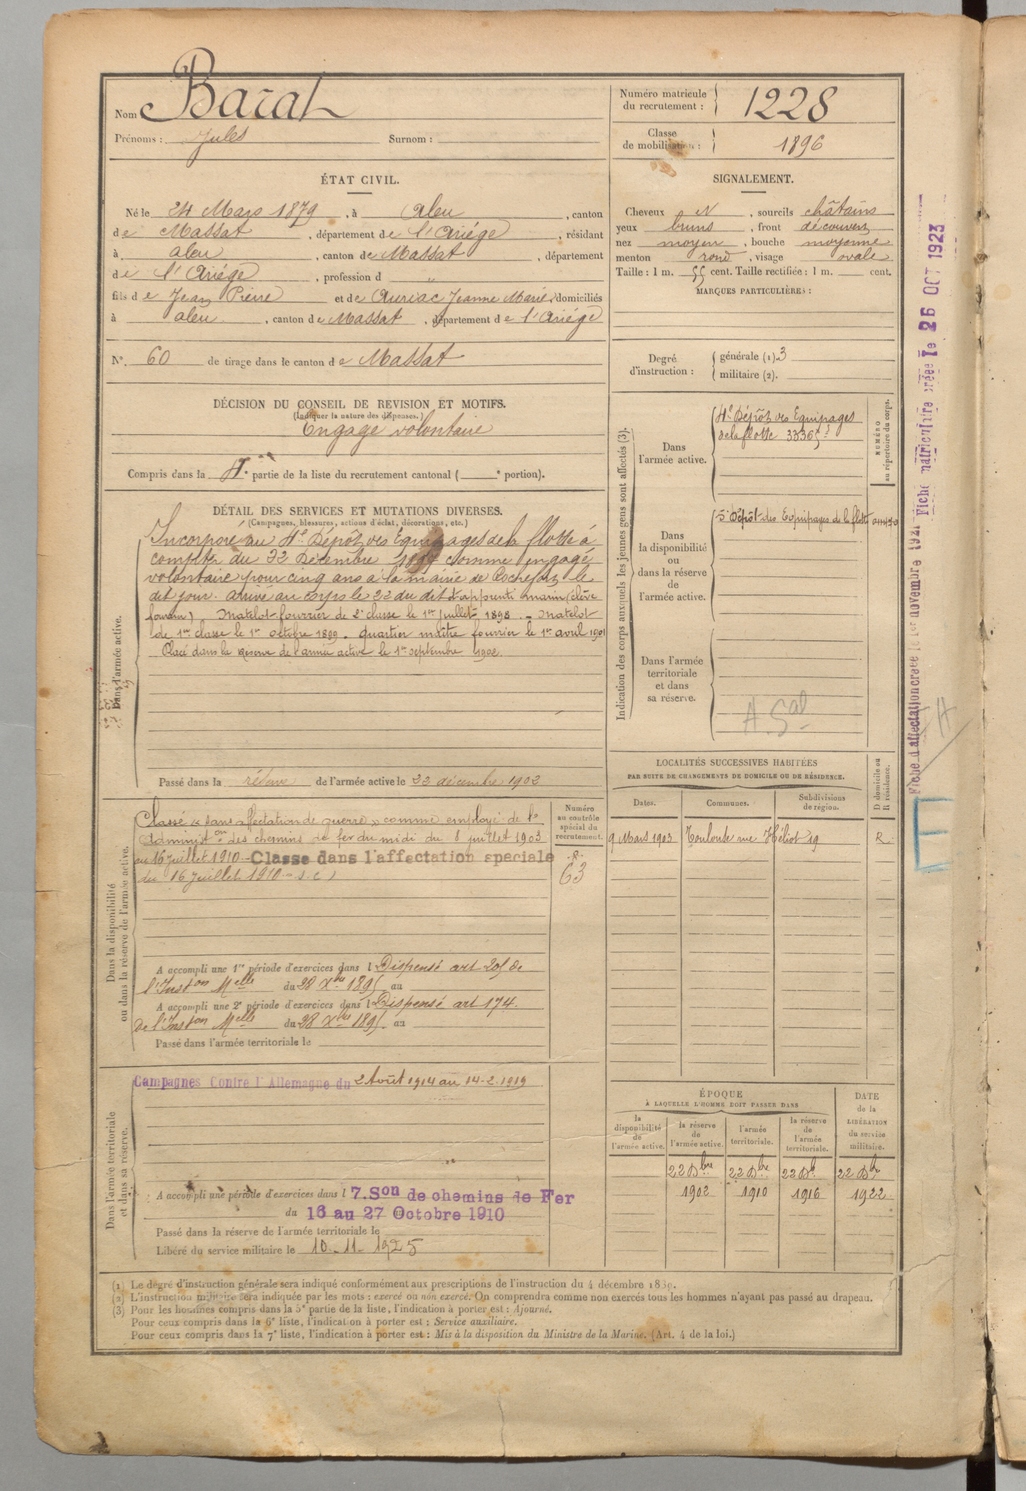 Nom Barat
Prénoms : Jules Surnom :
Numéro matricule du recrutement : 1228
Classe de mobilisation : 1896
ÉTAT CIVIL.
Né le 24 Mars 1879, à Aleu, canton
de Massat, département de l'Ariége, résidant
à aleu, canton de Massat, département
de l'Ariége, profession d "
fils de Jean Pierre et de Auriac Jeanne Marie, domiciliés
à aleu, canton de Massat, département de l'Ariége
N°. 60 de tirage dans le canton de Massat
DÉCISION DU CONSEIL DE REVISION ET MOTIFS.
(Indiquer la nature des dispenses.)
Engagé volontaire
Compris dans la partie de la liste du recrutement cantonal ( portion).
SIGNALEMENT.
Cheveux N, sourcils châtains
yeux bruns, front découvert
nez moyen, bouche moyenne
menton rond, visage ovale
Taille : 1 m. 55 cent. Taille rectifiée : 1 m. cent.
MARQUES PARTICULIÈRES :
Degré d'instruction :
générale (1). 3
militaire (2).
DÉTAIL DES SERVICES ET MUTATIONS DIVERSES.
(Campagnes, blessures, actions d'éclat, décorations, etc.)
Dans l'armée active.
Incorporé au 4e Dépôt des Equipages de la flotte à
compter du 22 Décembre comme engagé
volontaire pour cinq ans à la mairie de Rochefort le
dit jour. arrivé au corps le 22 du dit apprenti marin (élève
fourrier) Matelot fourrier de 2e classe le 1er juillet 1898. - Matelot
de 1re classe le 1er octobre 1899. quartier maître fourrier le 1er avril 1901
Placé dans la Réserve de l'armée active le 1er septembre 1902.
Passé dans la réserve de l'armée active le 22 décembre 1902
Indication des corps auxquels les jeunes gens sont affectés (3).
NUMÉRO au répertoire du corps.
Dans l'armée active.
4e Dépôt des Equipages
de la flotte 33365
Dans la disponibilité ou dans la réserve de l'armée active.
5e Dépôt des Equipages de la flotte
Dans l'armée territoriale et dans sa réserve.
A. Sal
LOCALITÉS SUCCESSIVES HABITÉES
PAR SUITE DE CHANGEMENTS DE DOMICILE OU DE RÉSIDENCE.
Dates. Communes. Subdivisions de région. D domicile ou R résidence.
9 Mars 1903 Toulouse rue Héliot 19 R.
Dans la disponibilité ou dans la réserve de l'armée active.
Numéro au contrôle spécial du recrutement.
R. 63
Classé "sans affectation de guerre" comme employé de l'
Administon des chemins de fer du midi du 8 juillet 1903
au 16 juillet 1910 - Classé dans l'affectation spéciale
du 16 juillet 1910 -
A accompli une 1re période d'exercices dans l Dispensé art 205 de
l'Inston Melle du 28 Xbre 1895 au
A accompli une 2e période d'exercices dans l Dispensé art 174.
de l'Inston Melle du 28 Xbre 1895. au
Passé dans l'armée territoriale le
Dans l'armée territoriale et dans sa réserve.
Campagnes Contre l'Allemagne du 2 Août 1914 au 14-2-1919
A accompli une période d'exercices dans l 7.Son de chemins de Fer
du 16 au 27 Octobre 1910
Passé dans la réserve de l'armée territoriale le
Libéré du service militaire le 10-11-1925
ÉPOQUE
À LAQUELLE L'HOMME DOIT PASSER DANS
la disponibilité de l'armée active.
la réserve de l'armée active.
l'armée territoriale.
la réserve de l'armée territoriale.
DATE de la LIBÉRATION du service militaire.
22 Dbre 22 Dbre 22 Dbre 22 Dbre
1902 1910 1916 1922
(1) Le degré d'instruction générale sera indiqué conformément aux prescriptions de l'instruction du 4 décembre 1889.
(2) L'instruction militaire sera indiquée par les mots : exercé ou non exercé. On comprendra comme non exercés tous les hommes n'ayant pas passé au drapeau.
(3) Pour les hommes compris dans la 5e partie de la liste, l'indication à porter est : Ajourné.
Pour ceux compris dans la 6e liste, l'indication à porter est : Service auxiliaire.
Pour ceux compris dans la 7e liste, l'indication à porter est : Mis à la disposition du Ministre de la Marine. (Art. 4 de la loi.)
Fiche d'affectation créée le 1er novembre 192
Fiche matriculaire créée le 26 OCT 1923